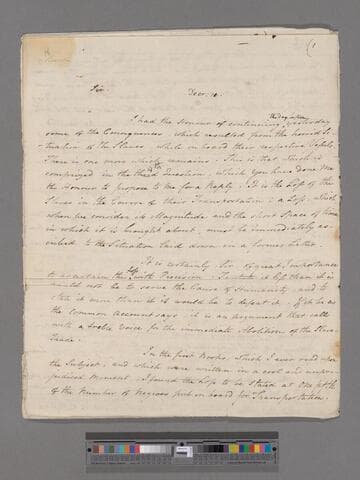 (1
Sir
Decr. 10.
the Day before
I had the Honour of continuing yesterday
some of the Consequences, which resulted from the horrid Si-
tuation of the Slaves, while on board their respective Vessels.
There is one more which remains. This is that which is
comprized in the third Question, which you have done Me
the Honour to propose to me for a Reply. It is the Loss of the
Slaves in the Course of their Transportation: a Loss, which
when we consider its Magnitude and the short Space of time
in which it is brought about, must be immediately as-
cribed to the Situation laid down in a former Letter.
It is certainly, Sir, of great Importance
to ascertain the Loss with Precision. To state it less than it is
would not be to serve the Cause of Humanity, and to
state it more than it is would be to defeat it. If it be as
the common Account says, it is an Argument that calls
with a treble Voice for the immediate Abolition of the Slave
Trade.
In the first Books, which I ever read upon
the Subject, and which were written in a cool and unpre-
judiced Moment, I found the Loss to be stated at one fifth
of the Number of Negroes put on board for Transportation.